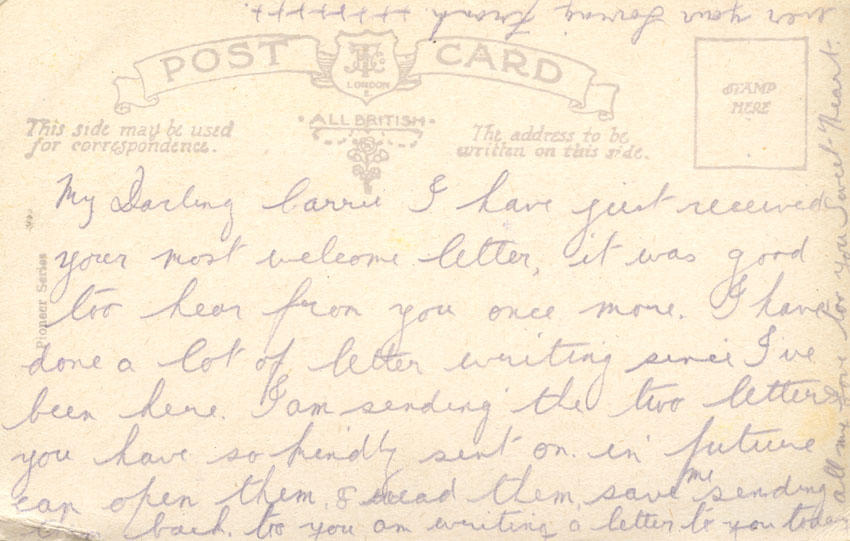 POST CARD
LONDON
ALL BRITISH
STAMP
HERE
This side may be used
for correspondence.
The address to be
written on this side.
Pioneer Series
My Darling Carrie I have just received
your most welcome letter, it was good
too hear from you once more. I have
done a lot of letter writing since I've
been here. I am sending the two letters
you have so kindly sent on. in future
can open them, & read them, save me sending
them back. to you am writing a letter to you today
all my love too you Sweet-Heart.
ever your loving Frank. ++++++++